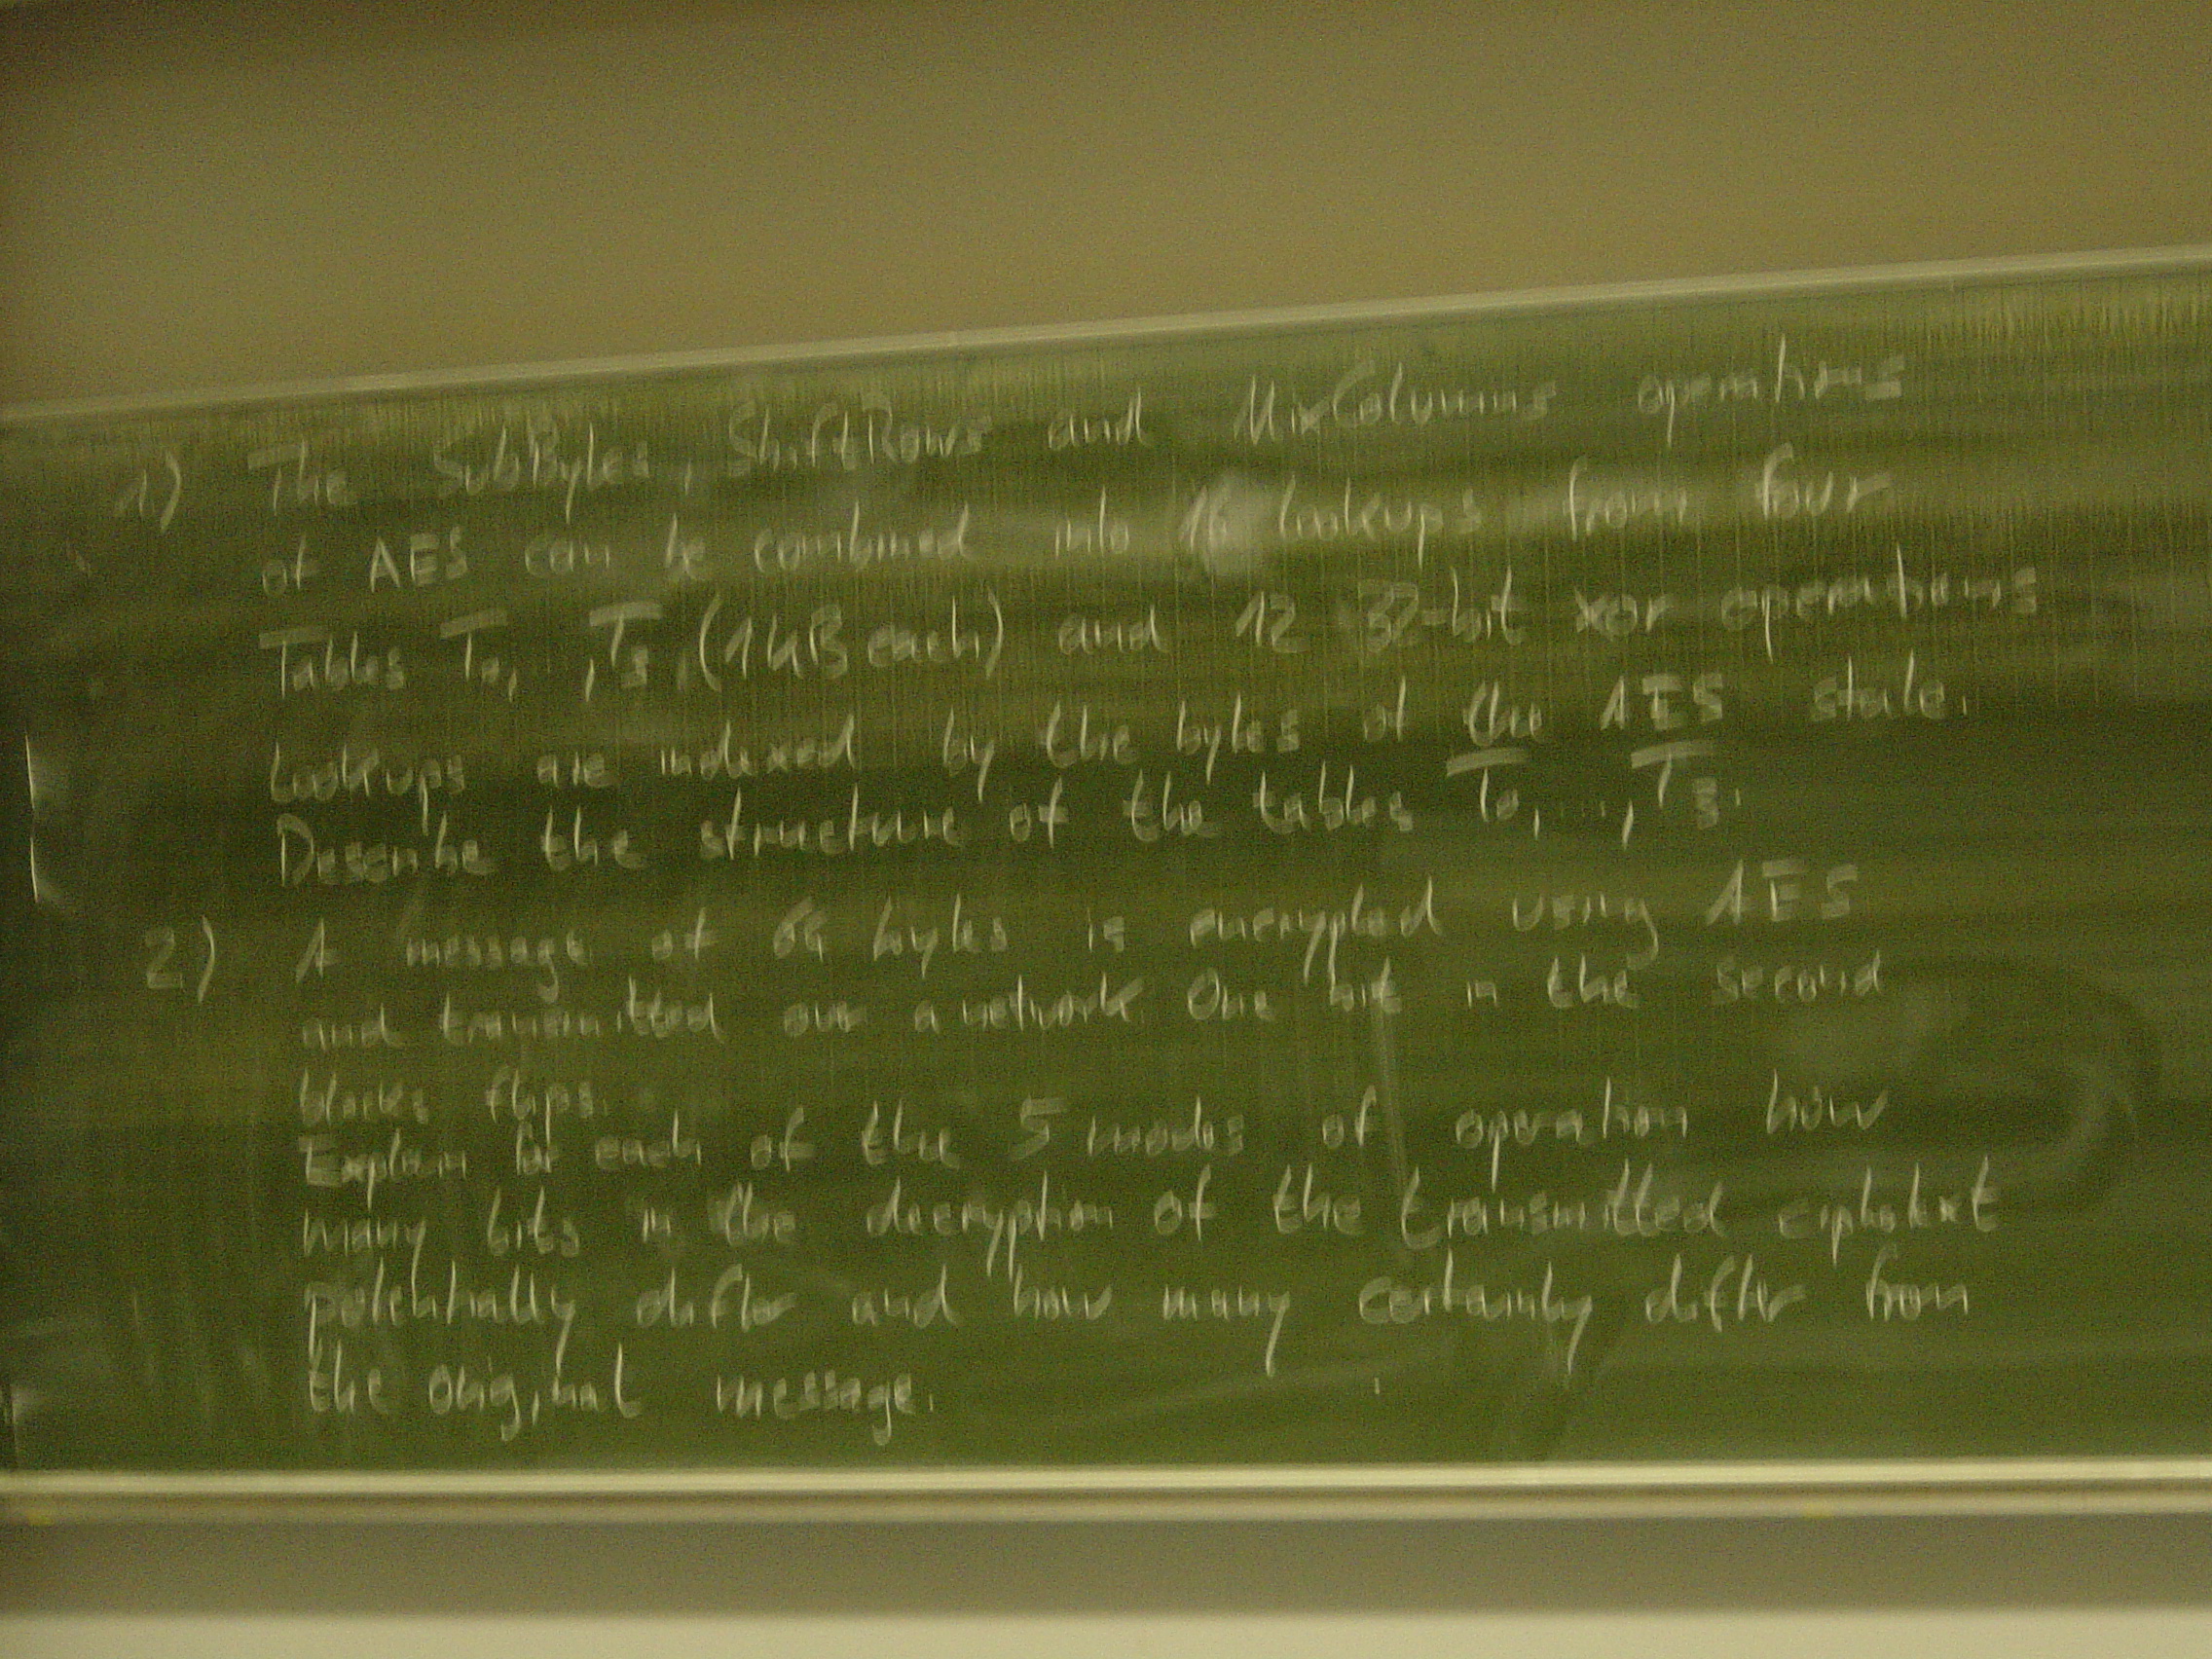 1) The SubBytes, ShiftRows and MixColumns operations
of AES can be combined into 16 lookups from four
Tables T0, ,T3,(1KB each) and 12 32-bit xor operations
Lookups are indexed by the bytes of the AES state.
Describe the structure of the tables T0, ..., T3.
2) A message of 64 bytes is encrypted using AES
and transmitted over a network One bit in the second
blocks flips.
Explain for each of the 5 modes of operation how
many bits in the decryption of the transmitted ciphertext
potentially differ and how many certainly differ from
the original message.